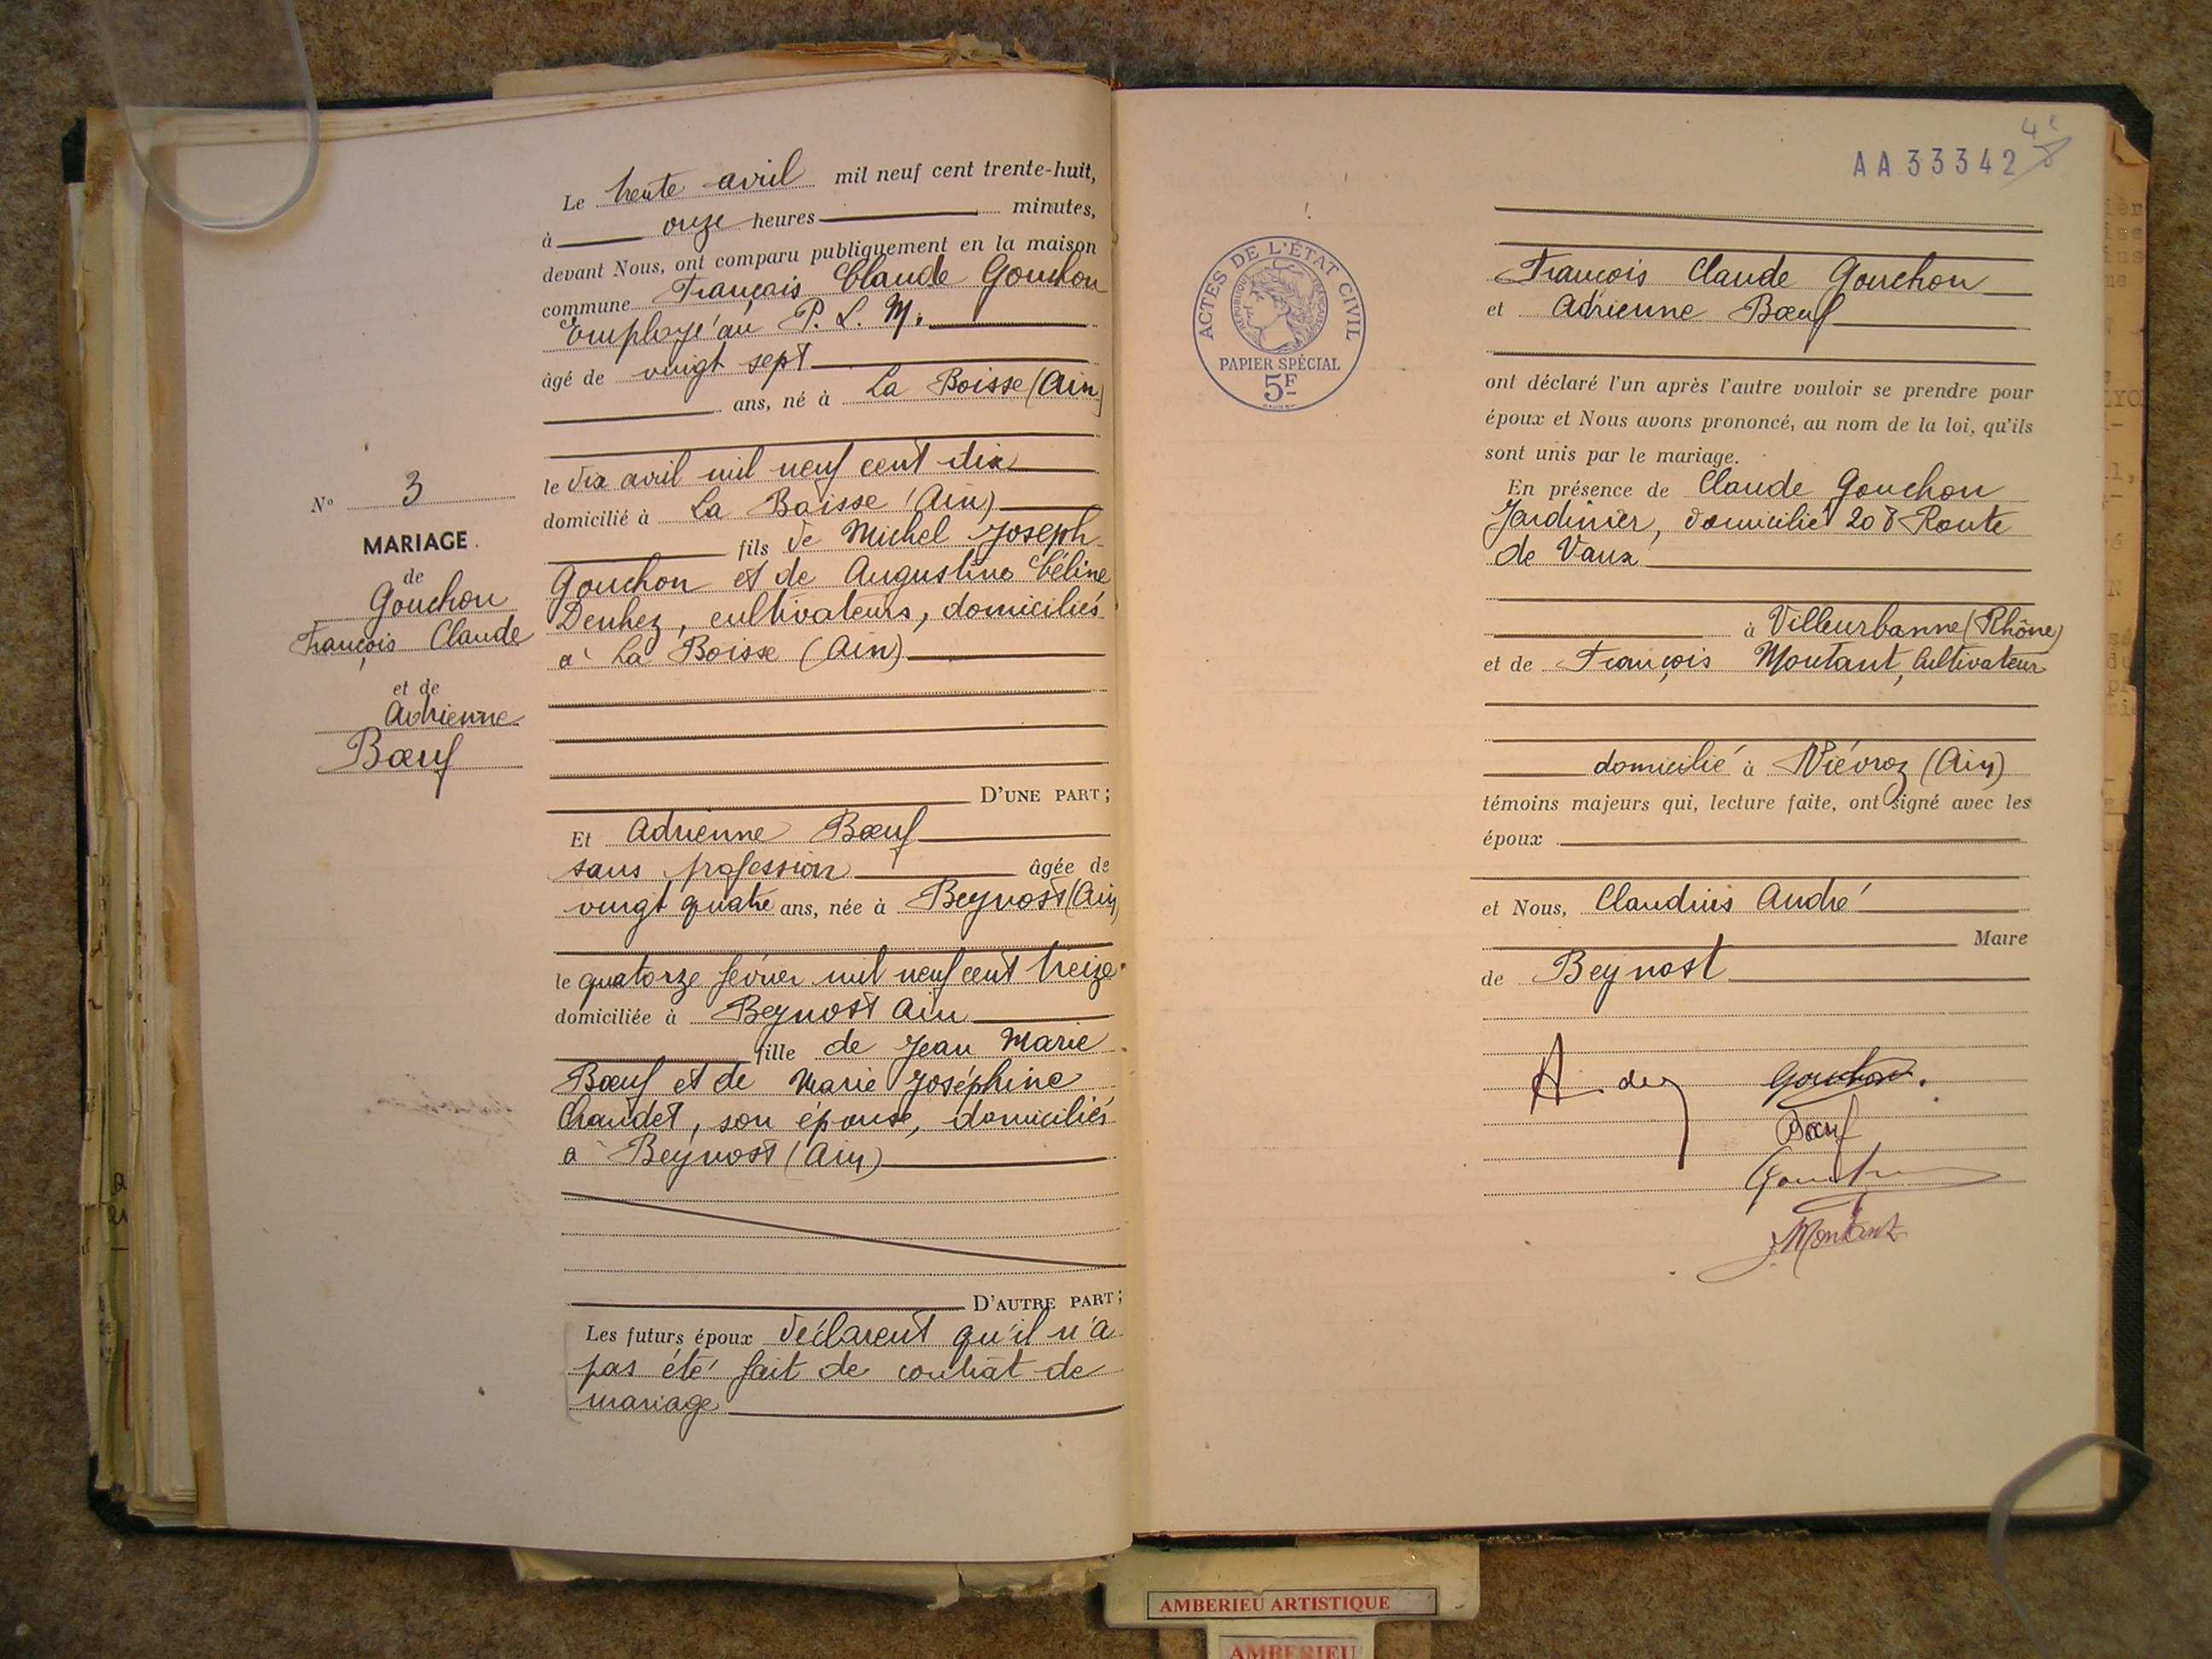 Le trente avril mil neuf cent trente-huit,
à onze heures minutes,
devant Nous, ont comparu publiquement en la maison
commune François Claude Gouchon
Employé au P. L. M.
âgé de vingt sept
ans, né à La Boisse (Ain)
le dix avril mil neuf cent dix
domicilié à La Boisse (Ain)
fils de Michel Joseph
Gouchon et de Augustine Céline
Denhez, cultivateurs, domiciliés
à La Boisse (Ain)
D'UNE PART;
Et Adrienne Bœuf
sans profession âgée de
vingt quatre ans, née à Beynost (Ain)
le quatorze février mil neuf cent treize
domiciliée à Beynost Ain
fille de Jean Marie
Bœuf et de Marie Joséphine
Chaudet, son épouse, domiciliés
à Beynost (Ain)
D'AUTRE PART;
Les futurs époux déclarent qu'il n'a
pas été fait de contrat de
mariage
N° 3
MARIAGE
de
Gouchon
François Claude
et de
Adrienne
Bœuf
AA 33342
ACTES DE L'ÉTAT CIVIL
RÉPUBLIQUE FRANÇAISE
PAPIER SPÉCIAL
5F
François Claude Gouchon
et Adrienne Bœuf
ont déclaré l'un après l'autre vouloir se prendre pour
époux et Nous avons prononcé, au nom de la loi, qu'ils
sont unis par le mariage.
En présence de Claude Gouchon
Jardinier, domicilié 208 Route
de Vaux
à Villeurbanne (Rhône)
et de François Montant, Cultivateur
domicilié à Niévroz (Ain)
témoins majeurs qui, lecture faite, ont signé avec les
époux
et Nous, Claudius André
Maire
de Beynost
Gouchon
Bœuf
J. Montant
AMBERIEU ARTISTIQUE
AMBERIEU